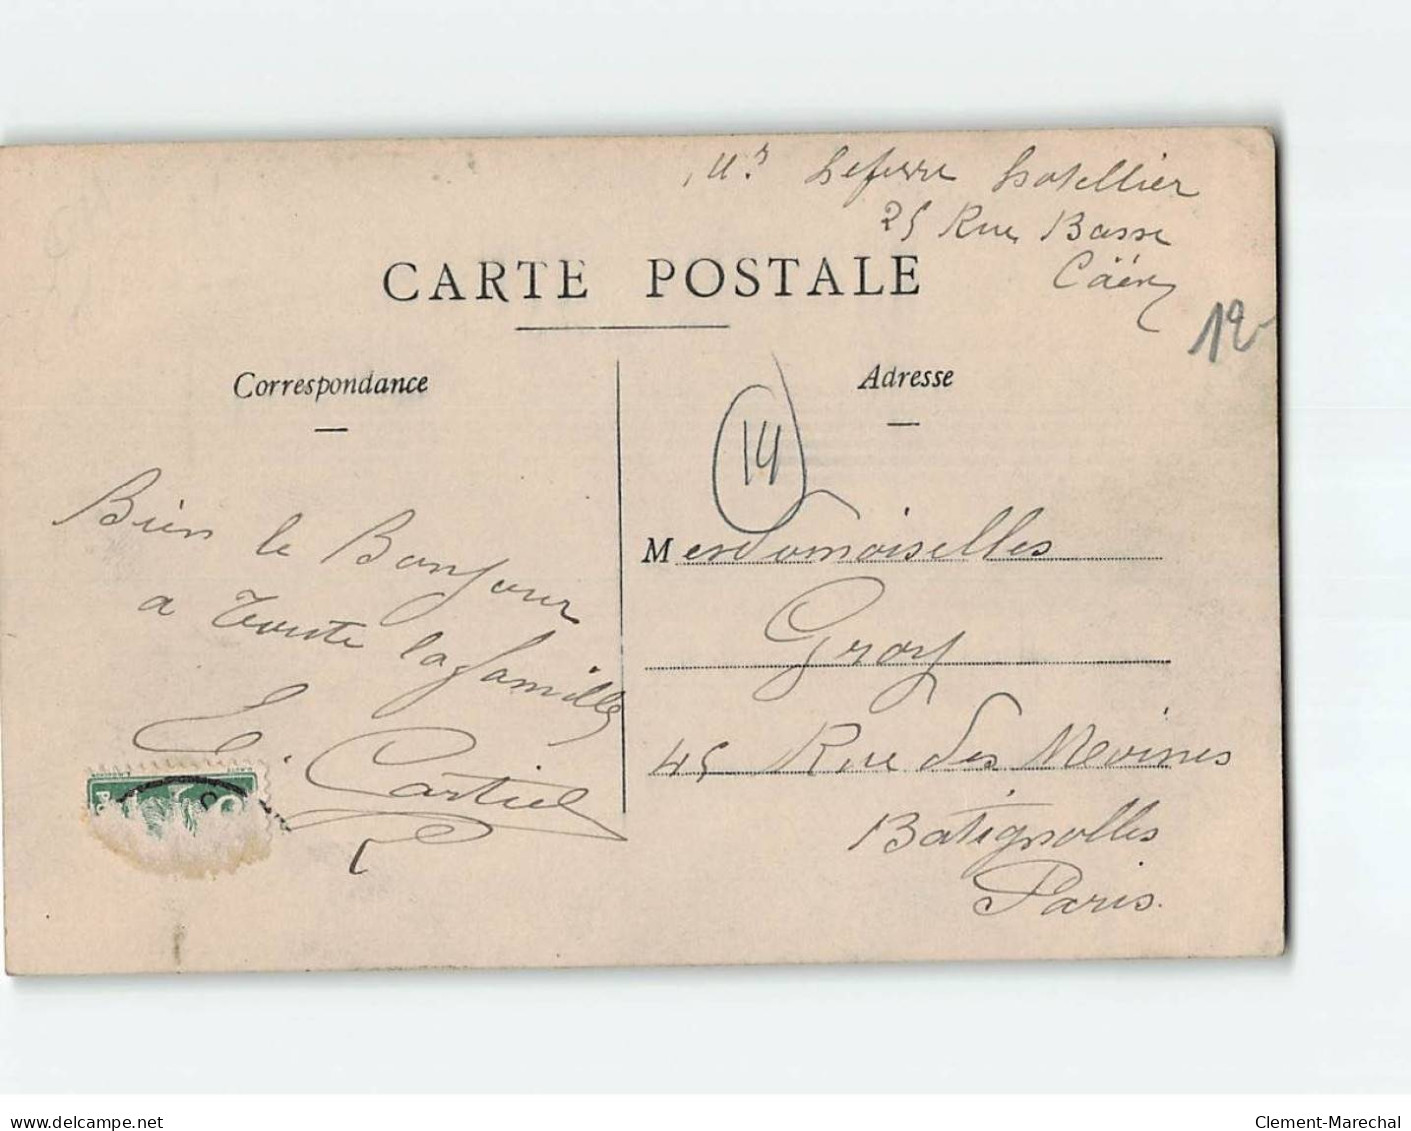 Mr Lefevre hotellier
25 Rue Basse
Cäen
CARTE POSTALE
12
Correspondance
Adresse
14
Bien le Bonjour
a toute la famille
E. Cartiel
Mesdemoiselles
Gray
45 Rue des Moines
Batignolles
Paris.
delcampe.net
Clement-Marechal